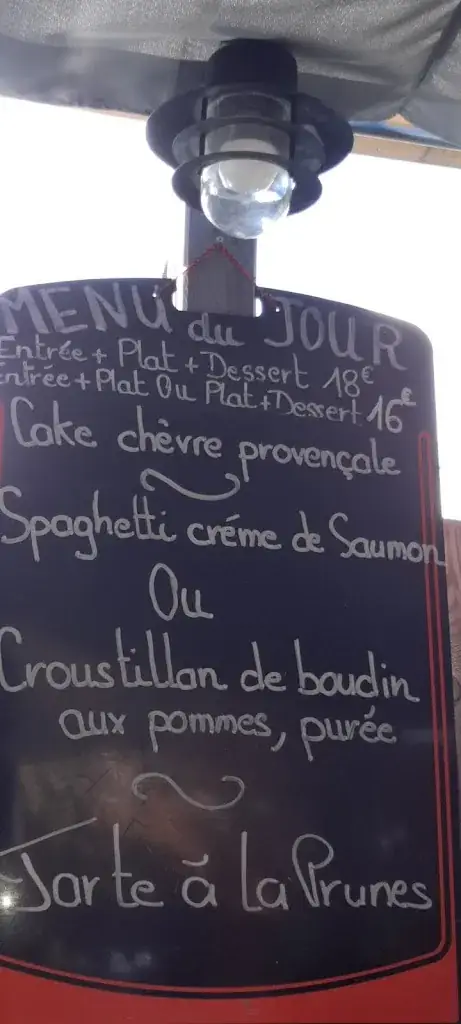 MENU du JOUR
Entrée + Plat + Dessert 18€
Entrée + Plat Ou Plat + Dessert 16€
Cake chèvre provençale
Spaghetti créme de Saumon
Ou
Croustillan de boudin
aux pommes, purée
Tarte à la Prunes